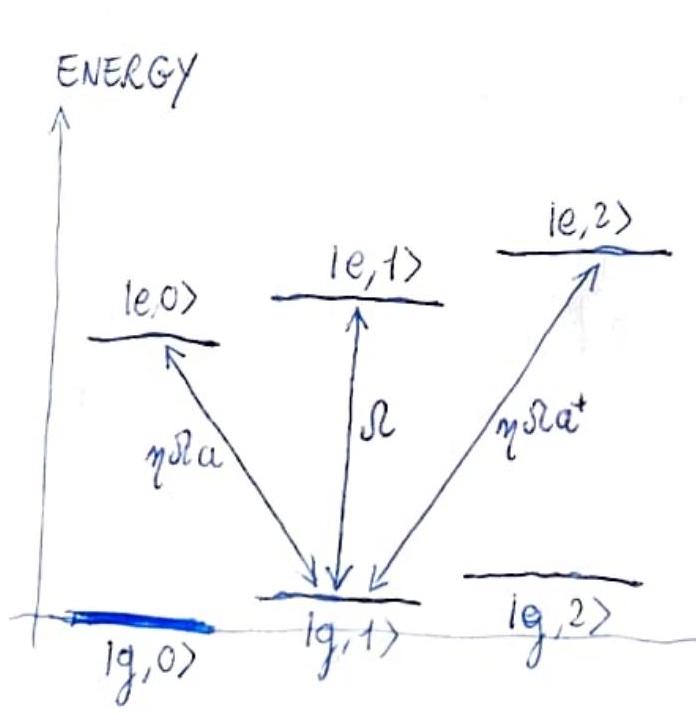 ENERGY
|e,2⟩
|e,1⟩
|e,0⟩
ηΩa
Ω
ηΩa⁺
|g,0⟩
|g,1⟩
|g,2⟩